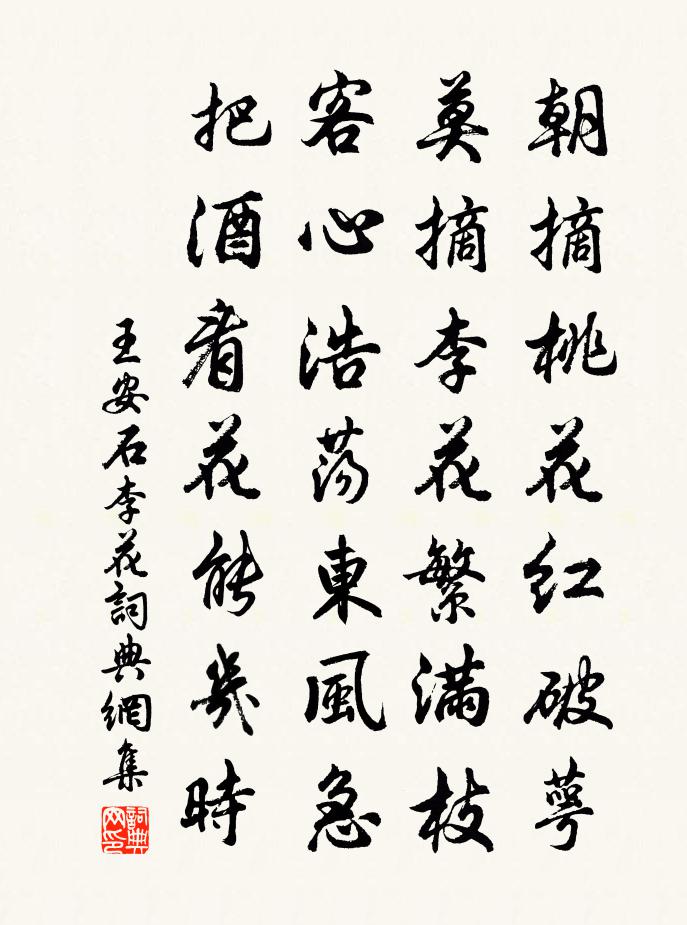 朝摘桃花紅破萼
莫摘李花繁滿枝
客心浩蕩東風急
把酒看花能幾時
王安石李花詞典網集
詞典
网印